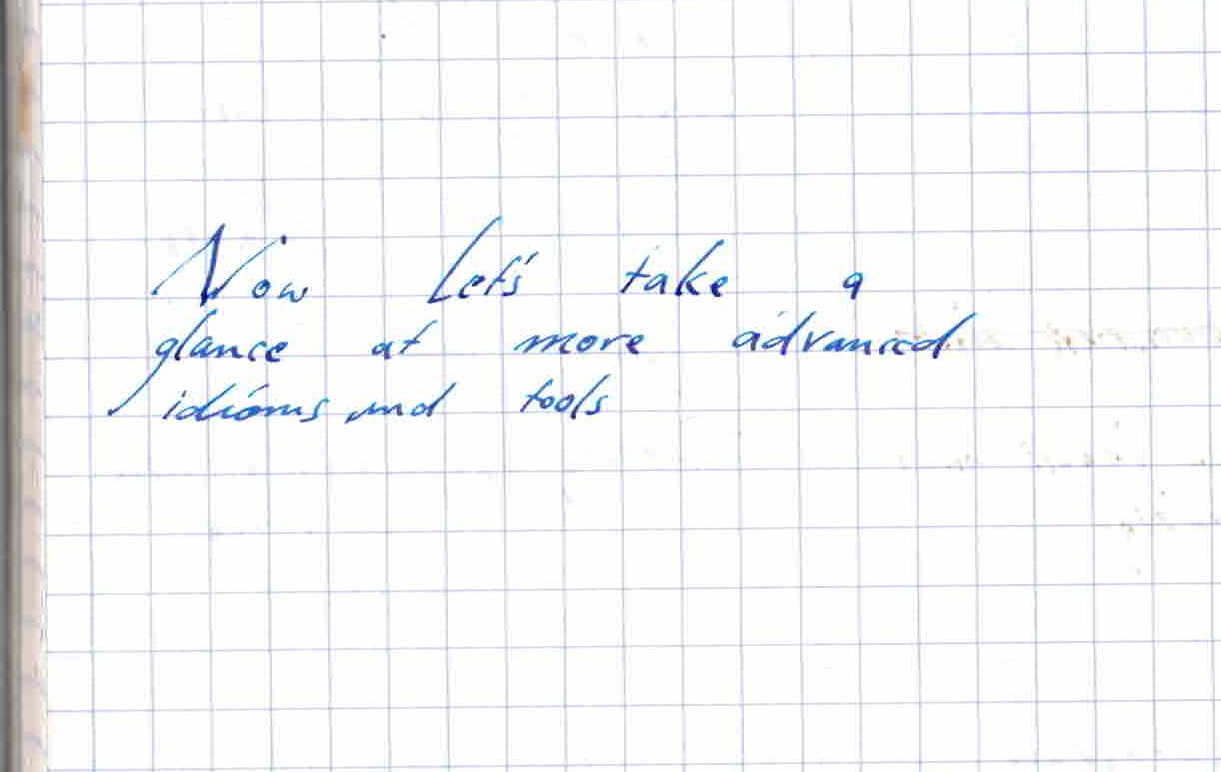 Now Let's take a
glance at more advanced
idioms and tools